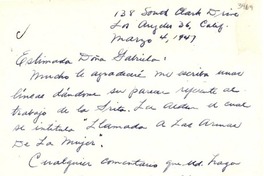 138 South Clark Drive
Los Angeles 36, Calif.
Marzo 4, 1947
Estimada Doña Gabriela:
Mucho le agradeceré me escriba unas
líneas dándome su parecer referente al
trabajo de la Srta. Lea Alden el cual
se intitula "Llamada A Las Armas
De La Mujer".
Cualquier comentario que Ud. haga